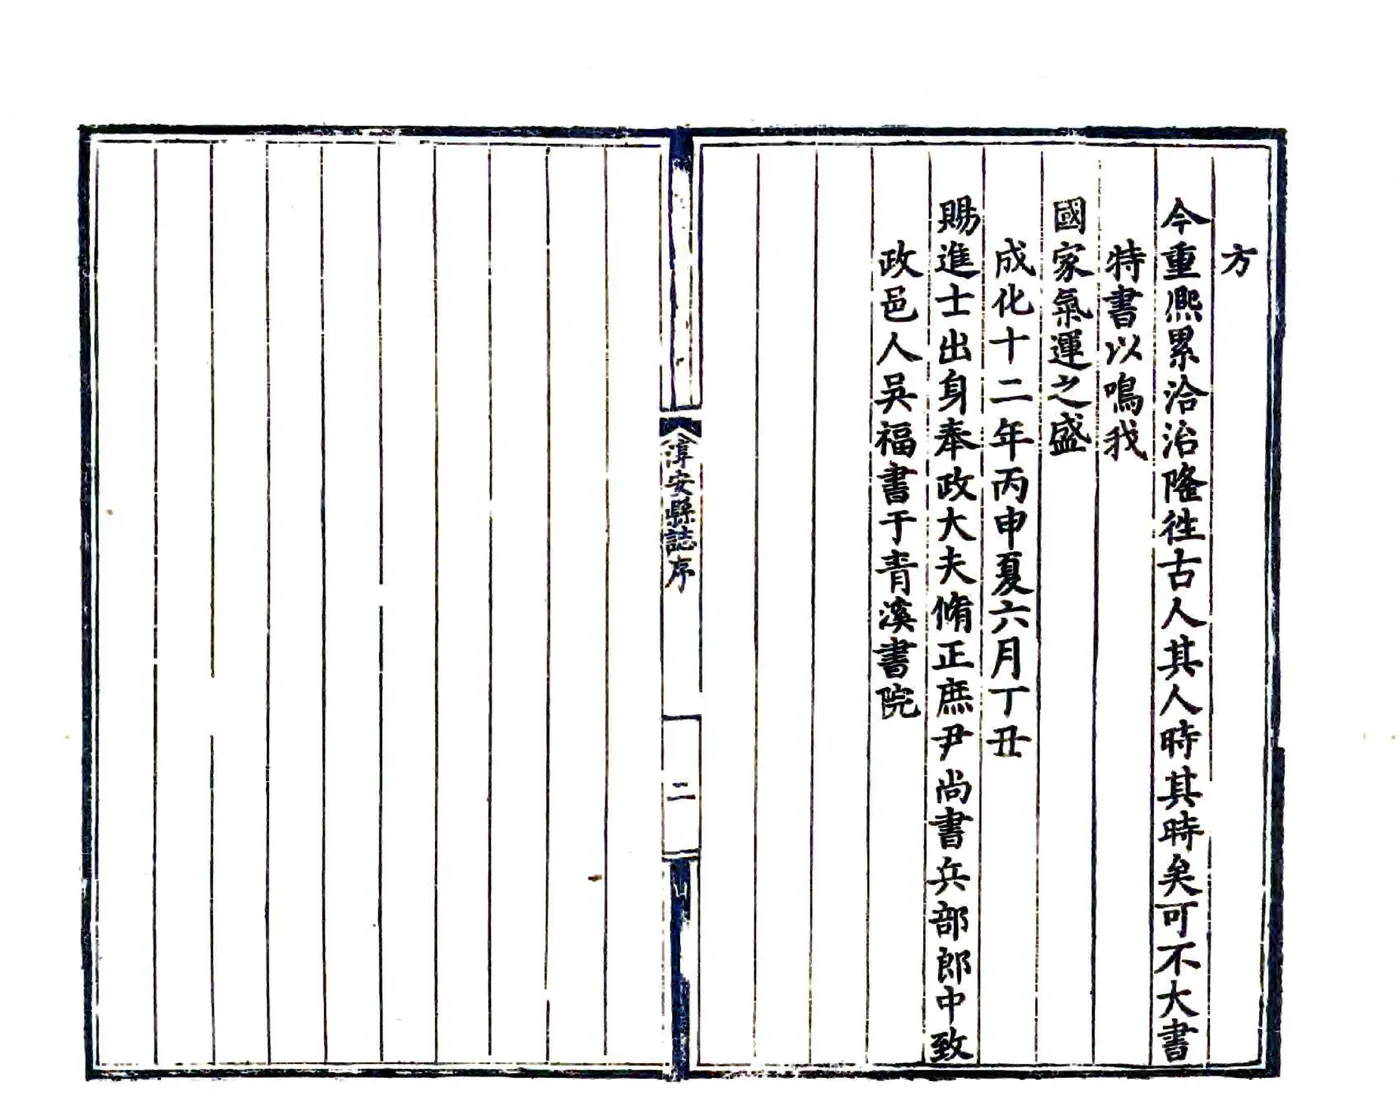 方
今重熈累洽治隆徃古人其人時其時矣可不大書
特書以鳴我
國家氣運之盛
成化十二年丙申夏六月丁丑
賜進士出身奉政大夫脩正庶尹尚書兵部郎中致
政邑人吳福書于青溪書院
淳安縣誌序
二